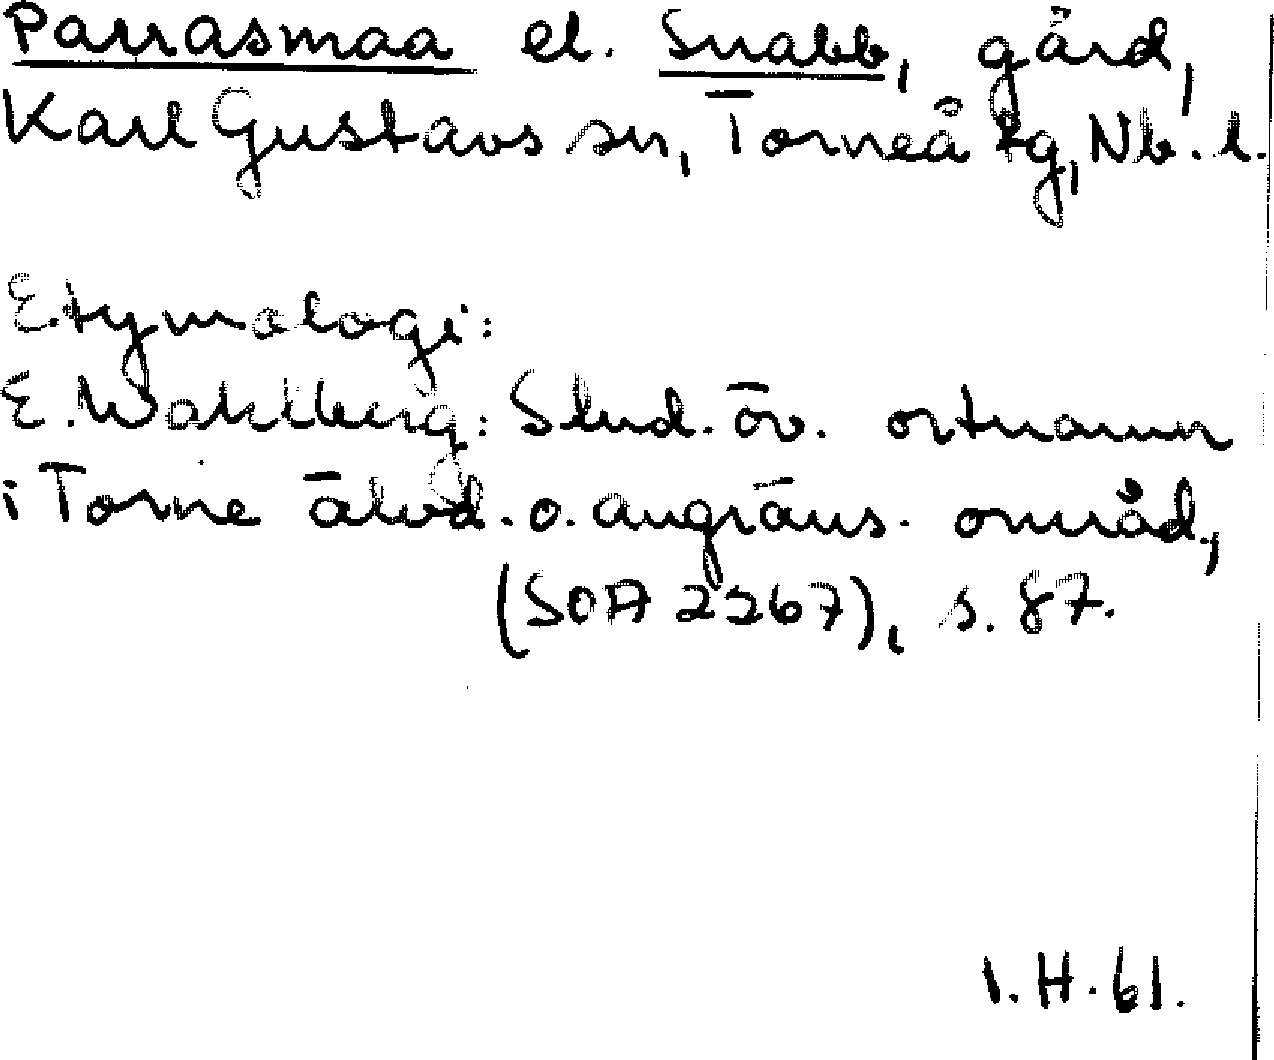 Parrasmaa el. Snabb, gård,
Karl Gustavs sn, Torneå tg, Nb. l.
Etymologi:
E. Wahlberg: Stud. öv. ortnamn
i Torne älvd. o. angräns. områd.,
(SOA 2267), s. 87.
I.H. 61.